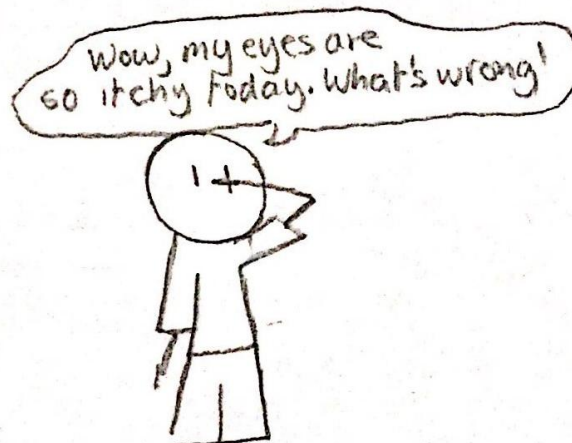 Wow, my eyes are
so itchy today. What's wrong!